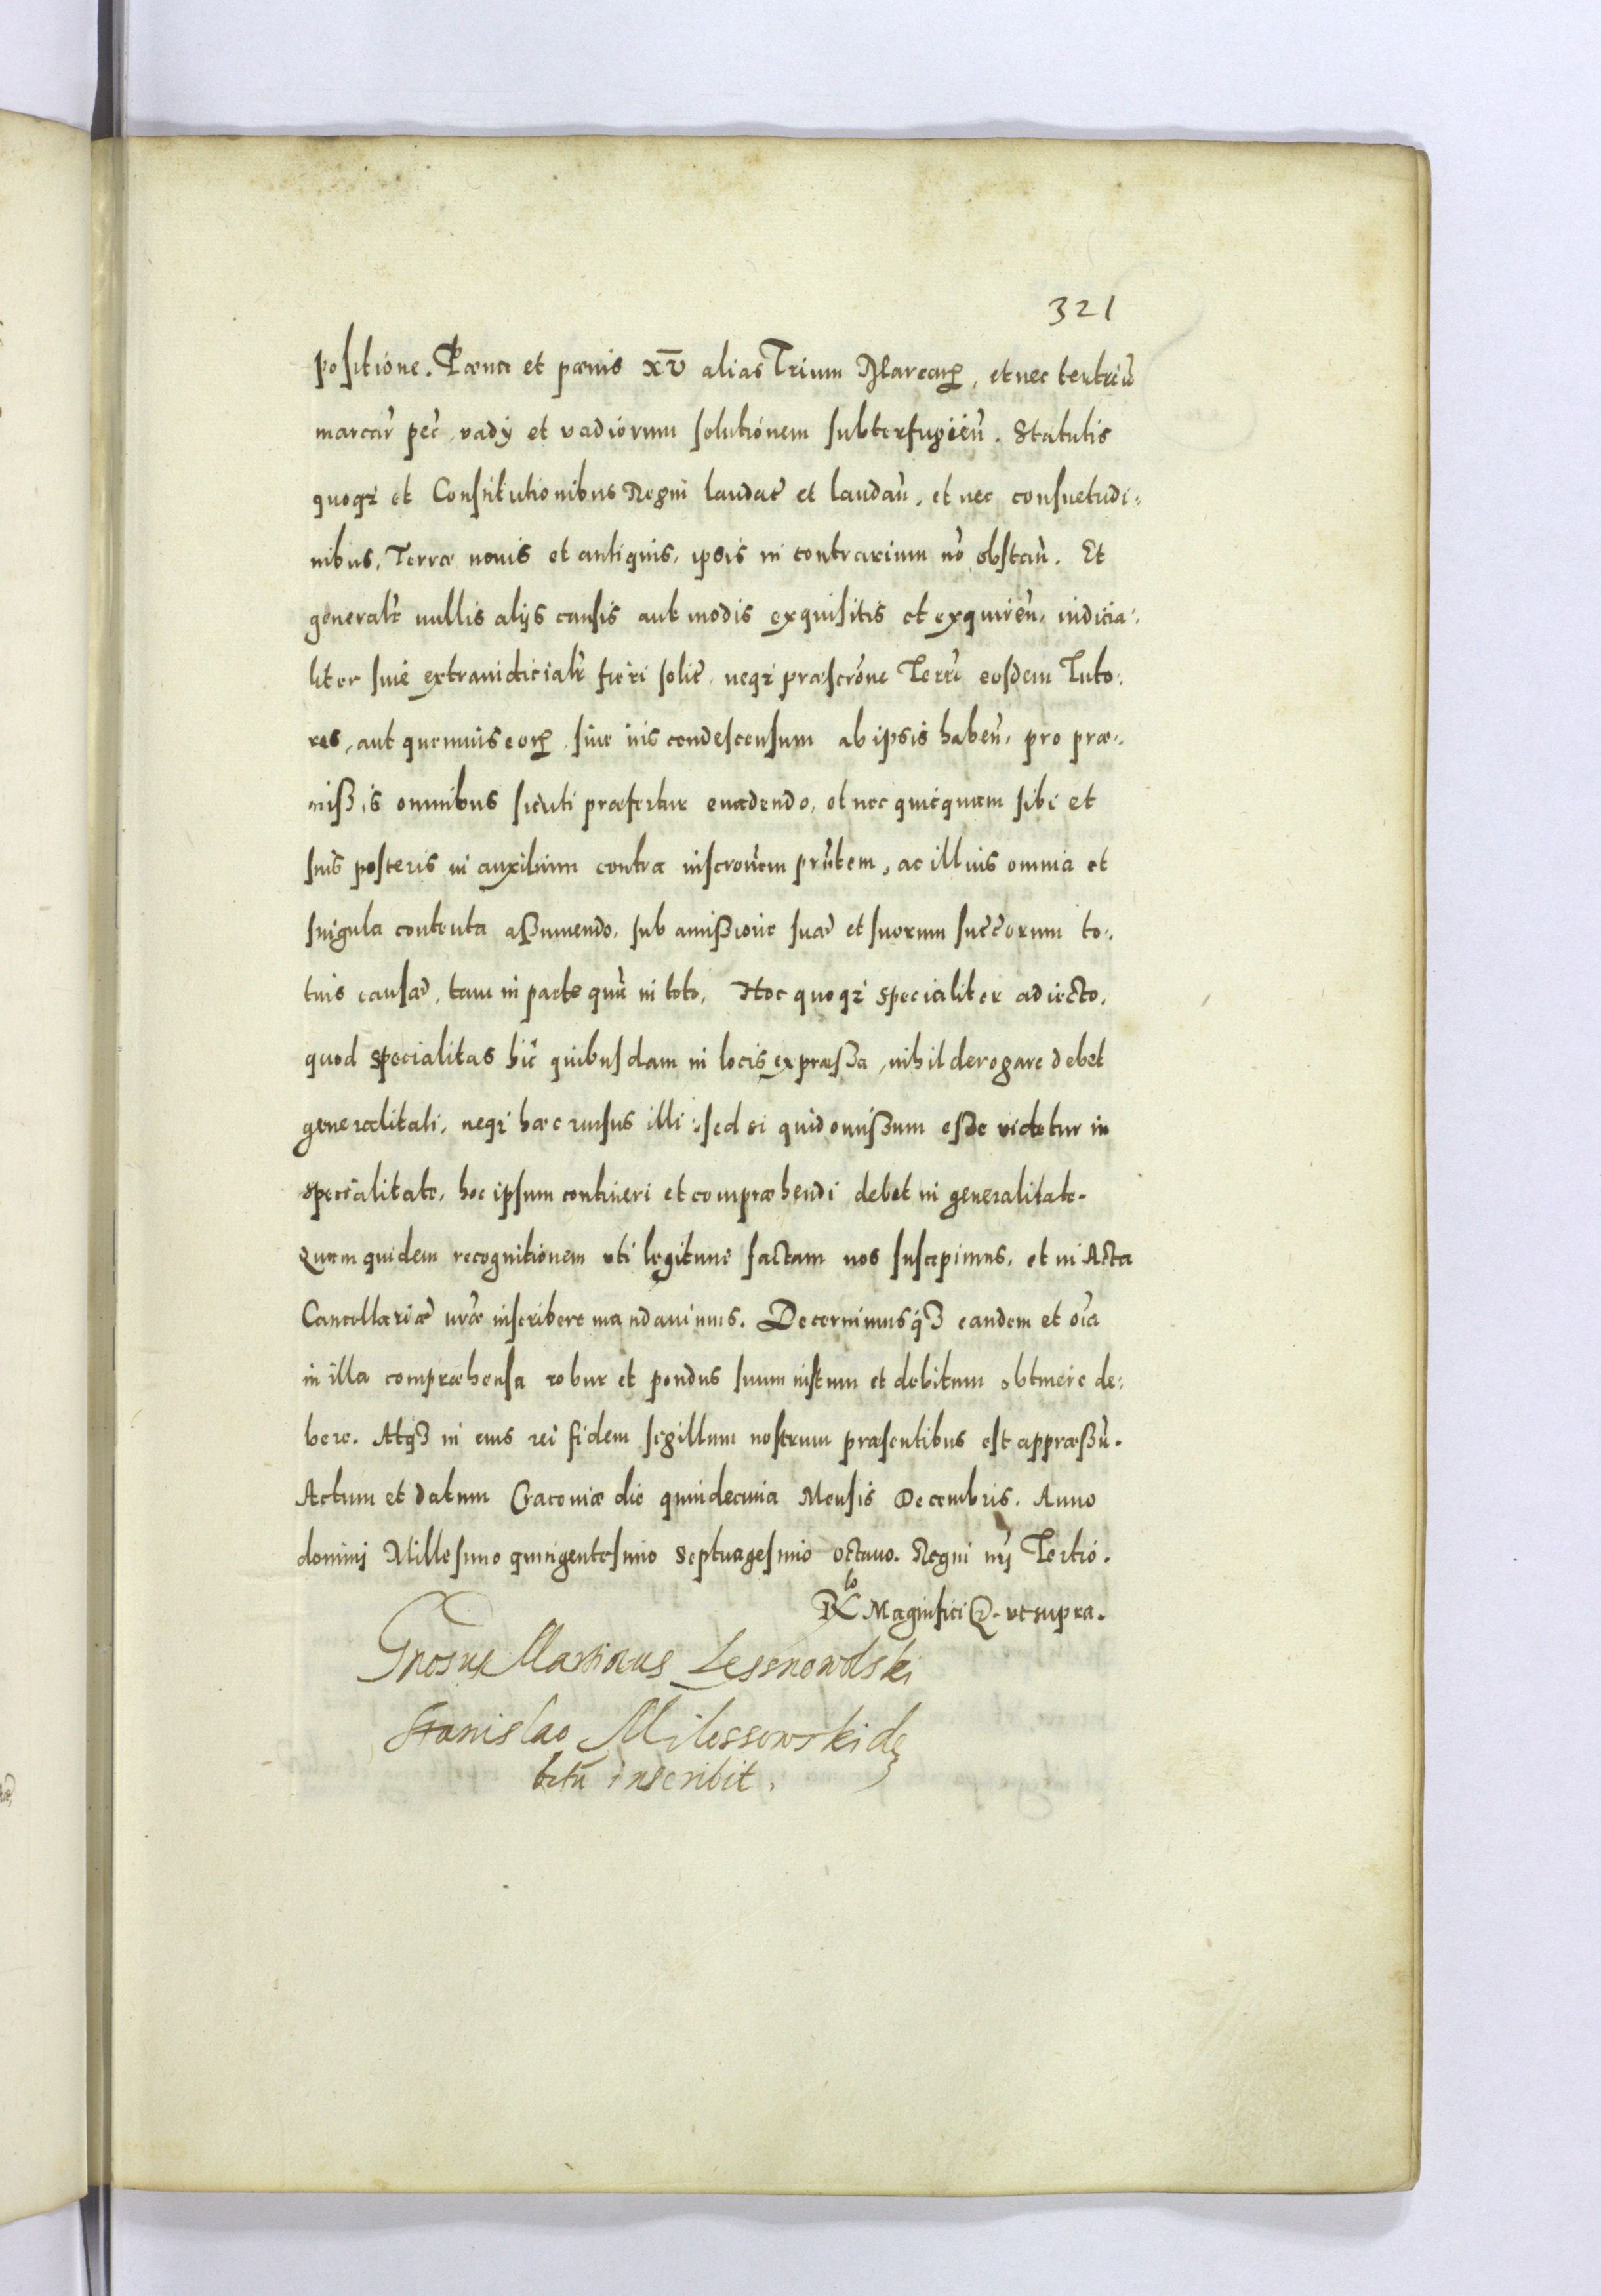 321
positione. Pæna et pænis xv alias Trium Marcarꝝ, et nec
marcar̃ pec̃, vadÿ et vadiorum solutionem subterfugieñ. Statutis
quoqꝫ et Constitutionibus Regni laudat̃ et laudañ, et nec consuetudi:
nibus, Terræ nouis et antiquis, ipsis in contrarium nõ obstañ. Et
generalr̃ nullis alijs causis aut modis exquisitis et exquireñ, iudicia:
liter siue extraiudicialr̃ fieri solit̃, neqꝫ præscrõne Terr̃ eosdem Tuto:
res, aut quemuis eorꝝ, siue ius condescensum ab ipsis habeñ, pro præ:
mißis omnibus sicuti præfertur euadendo, et nec quicquam sibi et
suis posteris in auxilium contra inscrõnem prñtem, ac illius omnia et
singula contenta aßumendo, sub amißione suæ et suorum succ̃orum to:
tius causæ, tam in parte quã in toto, Hoc quoqꝫ specialiter adiecto,
quod specialitas hic quibusdam in locis expræßa, nihil derogare debet
generalitati, neqꝫ hæc rursus illi: sed si quid omißum eße videtur in
specialitate, hoc ipsum contineri et compræhendi debet in generalitate.
Quam quidem recognitionem uti legitime factam nos suscepimus, et in Acta
Cancellariæ nr̃æ inscribere mandauimus. Decernimusqꝫ eandem et oĩa
in illa compræhensa robur et pondus suum iustum et debitum obtinere de:
bere. Atqꝫ in eius rei fidem sigillum nostrum præsentibus est appræßũ.
Actum et datum Cracouiæ die quindecima Mensis Decembris. Anno
domini Millesimo quingentesimo Septuagesimo octauo. Regni nr̃j Tertio.
Rlo Magnifici D. vt supra.
Gnosus Martinus Lessnowolski
Stanislao Milessewski de
bitũ inscribit.